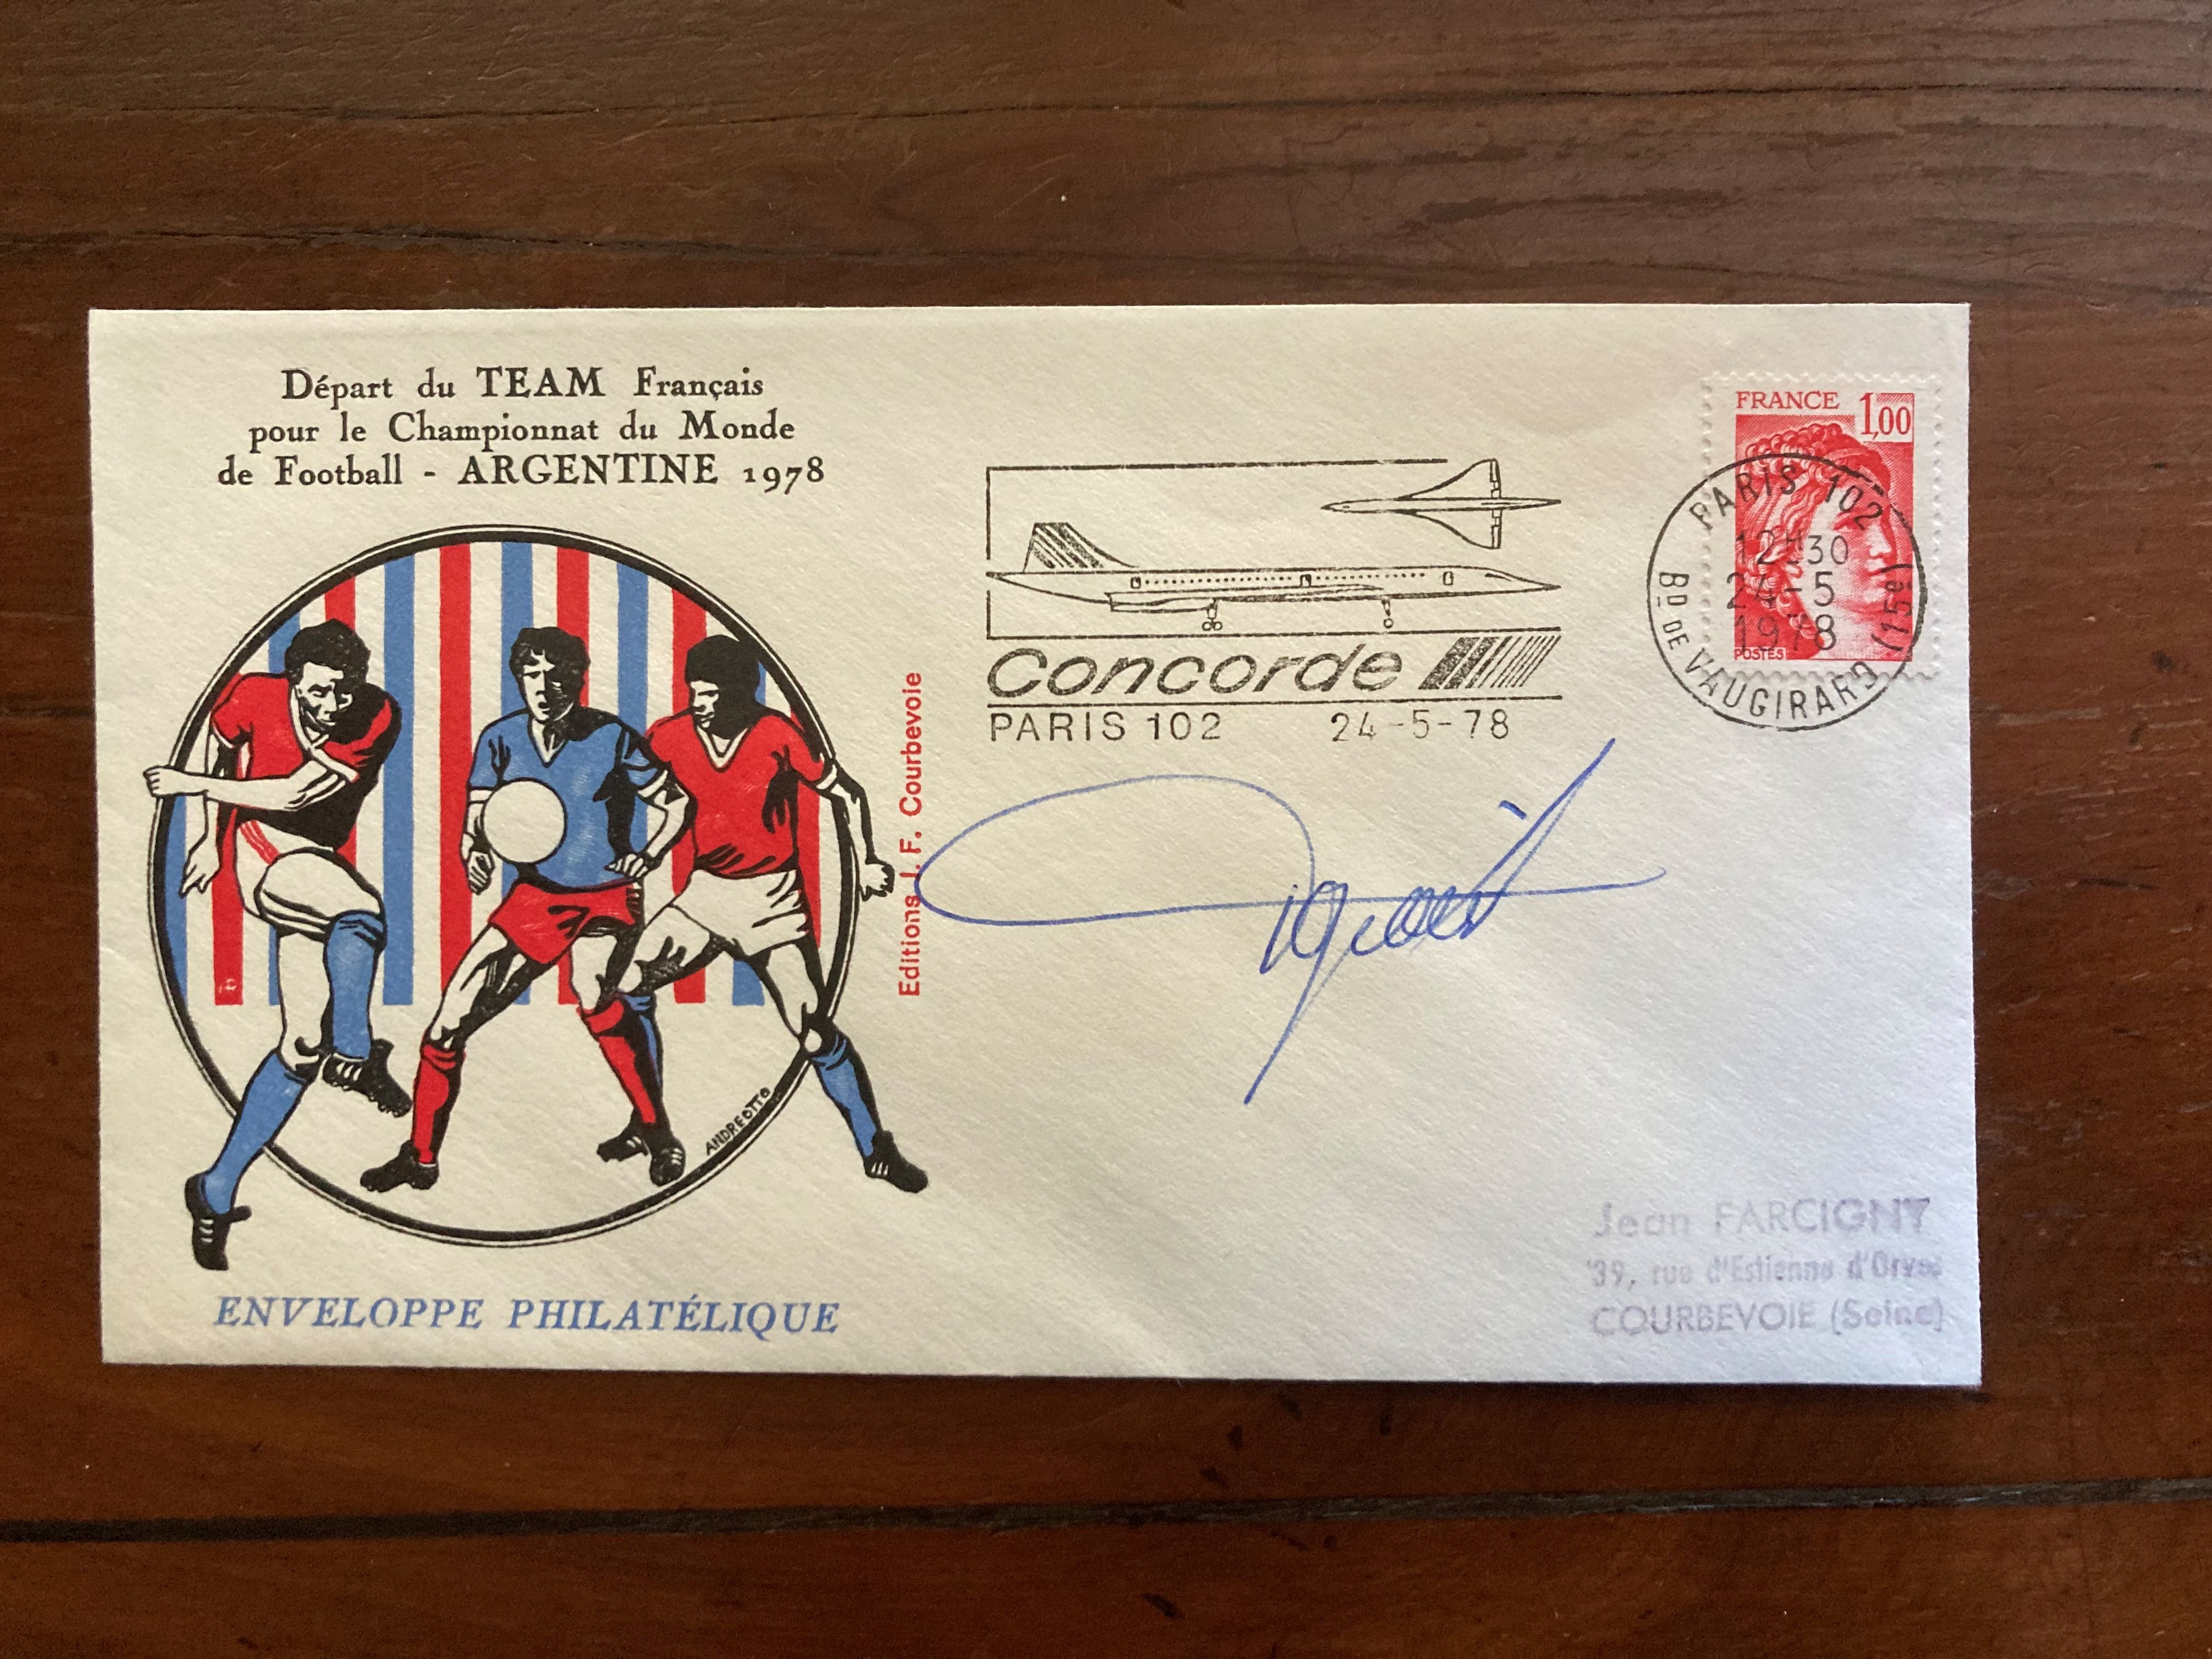 Départ du TEAM Français
pour le Championnat du Monde
de Football - ARGENTINE 1978
Editions J. F. Courbevoie
ANDREOTTO
ENVELOPPE PHILATÉLIQUE
Concorde
PARIS 102 24-5-78
FRANCE 1,00
POSTES
PARIS 102
12H30
24-5
1978
BD DE VAUGIRARD (15e)
Jean FARCIGNY
39, rue d'Estienne d'Orves
COURBEVOIE (Seine)